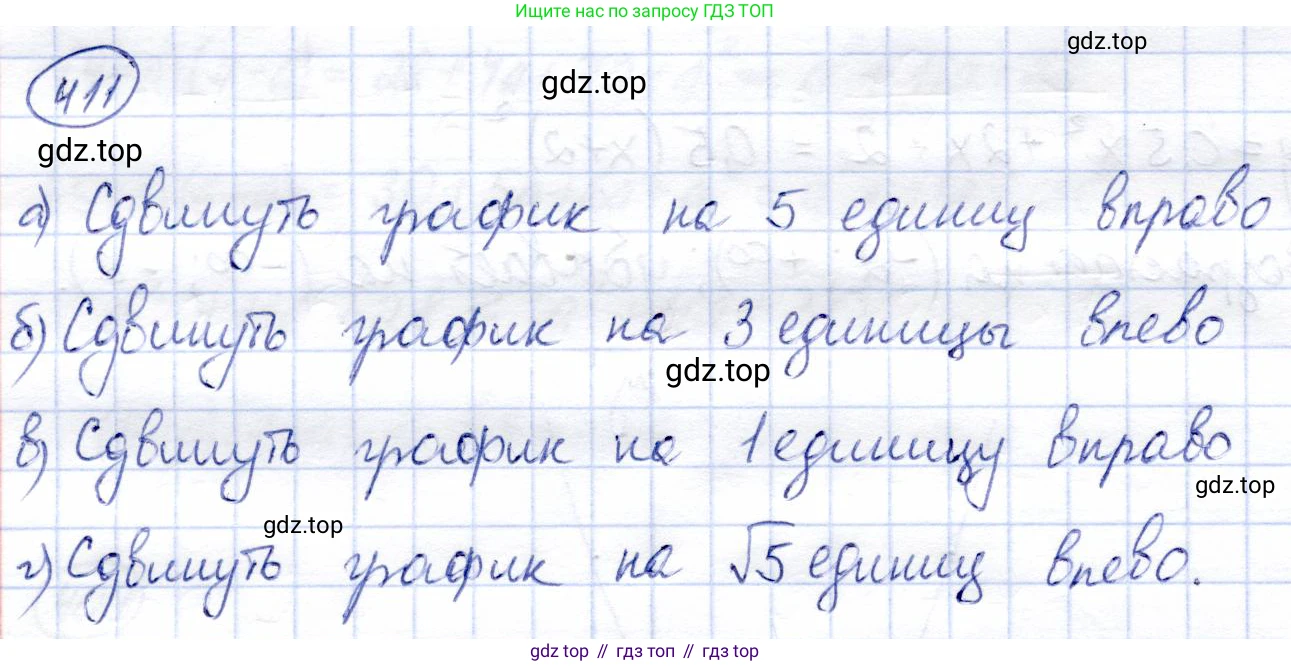 Ищите нас по запросу ГДЗ ТОП
gdz.top
411
gdz.top
gdz.top
а) Сдвинуть график на 5 единиц вправо
б) Сдвинуть график на 3 единицы влево
gdz.top
в) Сдвинуть график на 1 единицу вправо
gdz.top
gdz.top
г) Сдвинуть график на √5 единиц влево.
gdz.top // гдз топ // гдз top